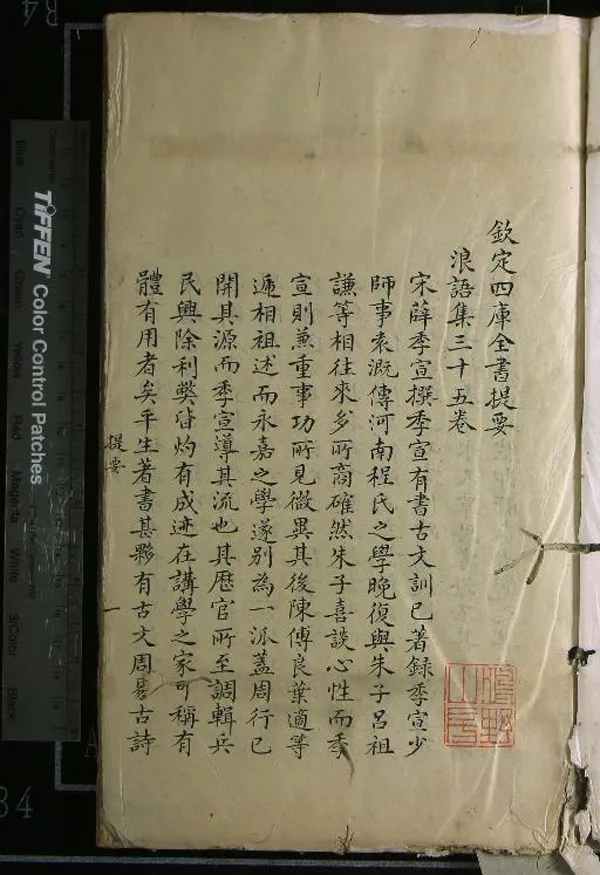 欽定四庫全書提要
浪語集三十五卷
宋薛季宣撰季宣有書古文訓已著録季宣少
師事袁溉傳河南程氏之學晚復與朱子呂祖
謙等相往來多所商確然朱子喜談心性而季
宣則兼重事功所見微異其後陳傅良葉適等
遞相祖述而永嘉之學遂别為一派蓋周行已
開其源而季宣導其流也其歷官所至調輯兵
民興除利獘皆灼有成迹在講學之家可稱有
體有用者矣平生著書甚夥有古文周易古詩
提要
一
TIFFEN Color Control Patches
Blue
Cyan
Green
Yellow
Red
Magenta
White
3/Color
Black